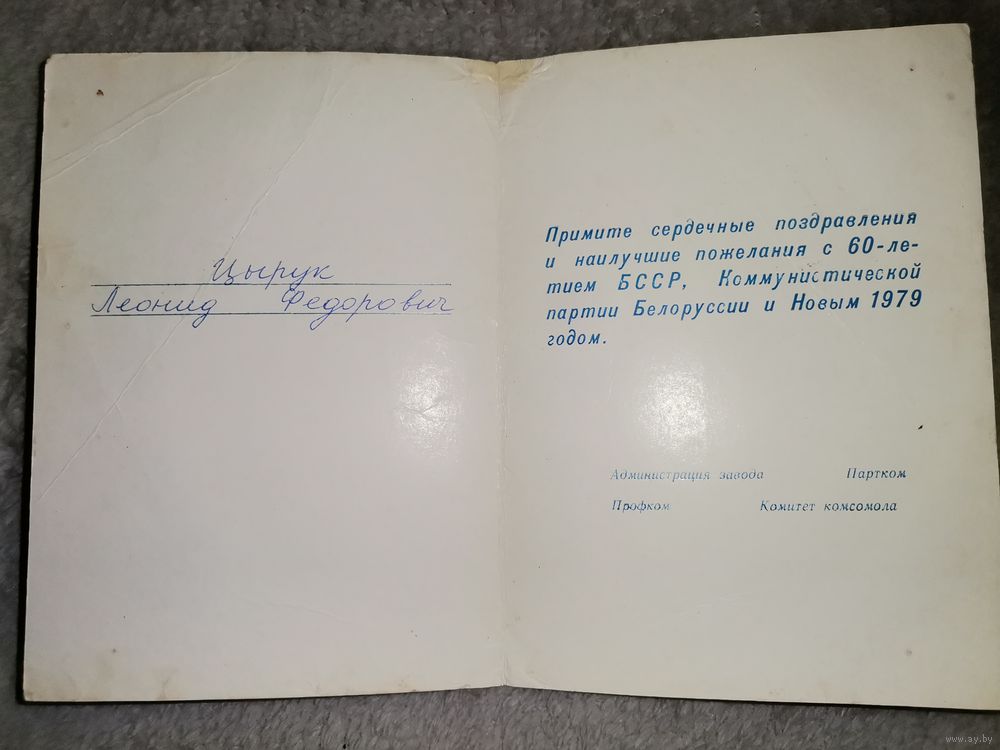 Цырук
Леонид Федорович
Примите сердечные поздравления
и наилучшие пожелания с 60-ле-
тием БССР, Коммунистической
партии Белоруссии и Новым 1979
годом.
Администрация завода Партком
Профком Комитет комсомола
www.ay.by